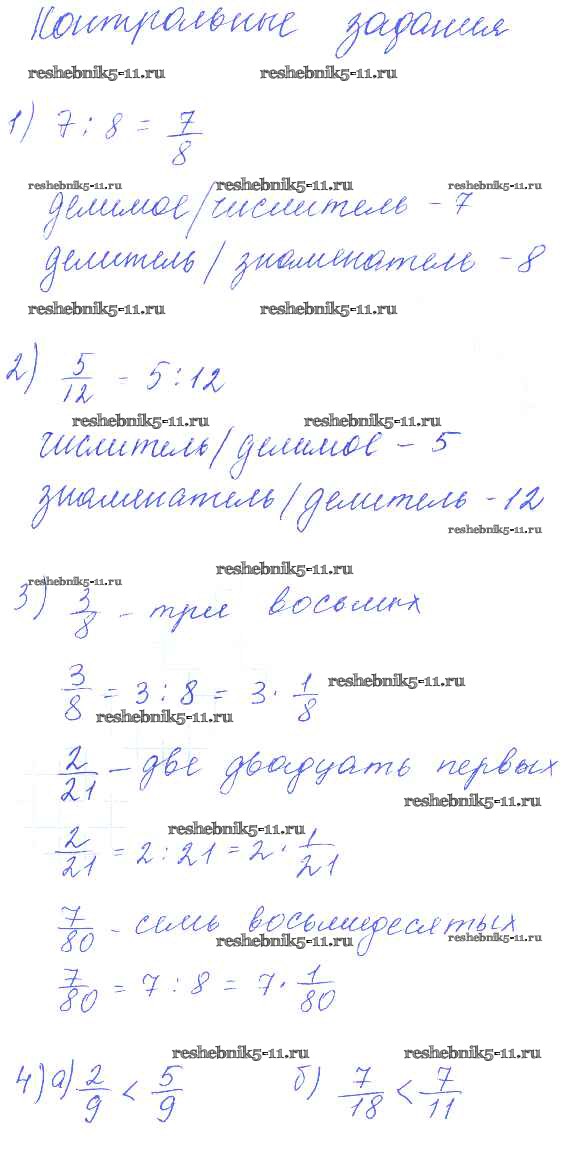 Контрольные задания
reshebnik5-11.ru reshebnik5-11.ru
1) 7 : 8 = 7/8
reshebnik5-11.ru reshebnik5-11.ru reshebnik5-11.ru
делимое/числитель - 7
делитель/знаменатель - 8
reshebnik5-11.ru reshebnik5-11.ru
2) 5/12 - 5 : 12
reshebnik5-11.ru reshebnik5-11.ru
числитель/делимое - 5
знаменатель/делитель - 12
reshebnik5-11.ru
reshebnik5-11.ru
reshebnik5-11.ru
3) 3/8 - три восьмых
3/8 = 3 : 8 = 3 · 1/8 reshebnik5-11.ru
reshebnik5-11.ru
2/21 - две двадцать первых
reshebnik5-11.ru
reshebnik5-11.ru
2/21 = 2 : 21 = 2 · 1/21
7/80 - семь восьмидесятых
reshebnik5-11.ru reshebnik5-11.ru
7/80 = 7 : 8 = 7 · 1/80
reshebnik5-11.ru reshebnik5-11.ru
4) а) 2/9 < 5/9 б) 7/18 < 7/11